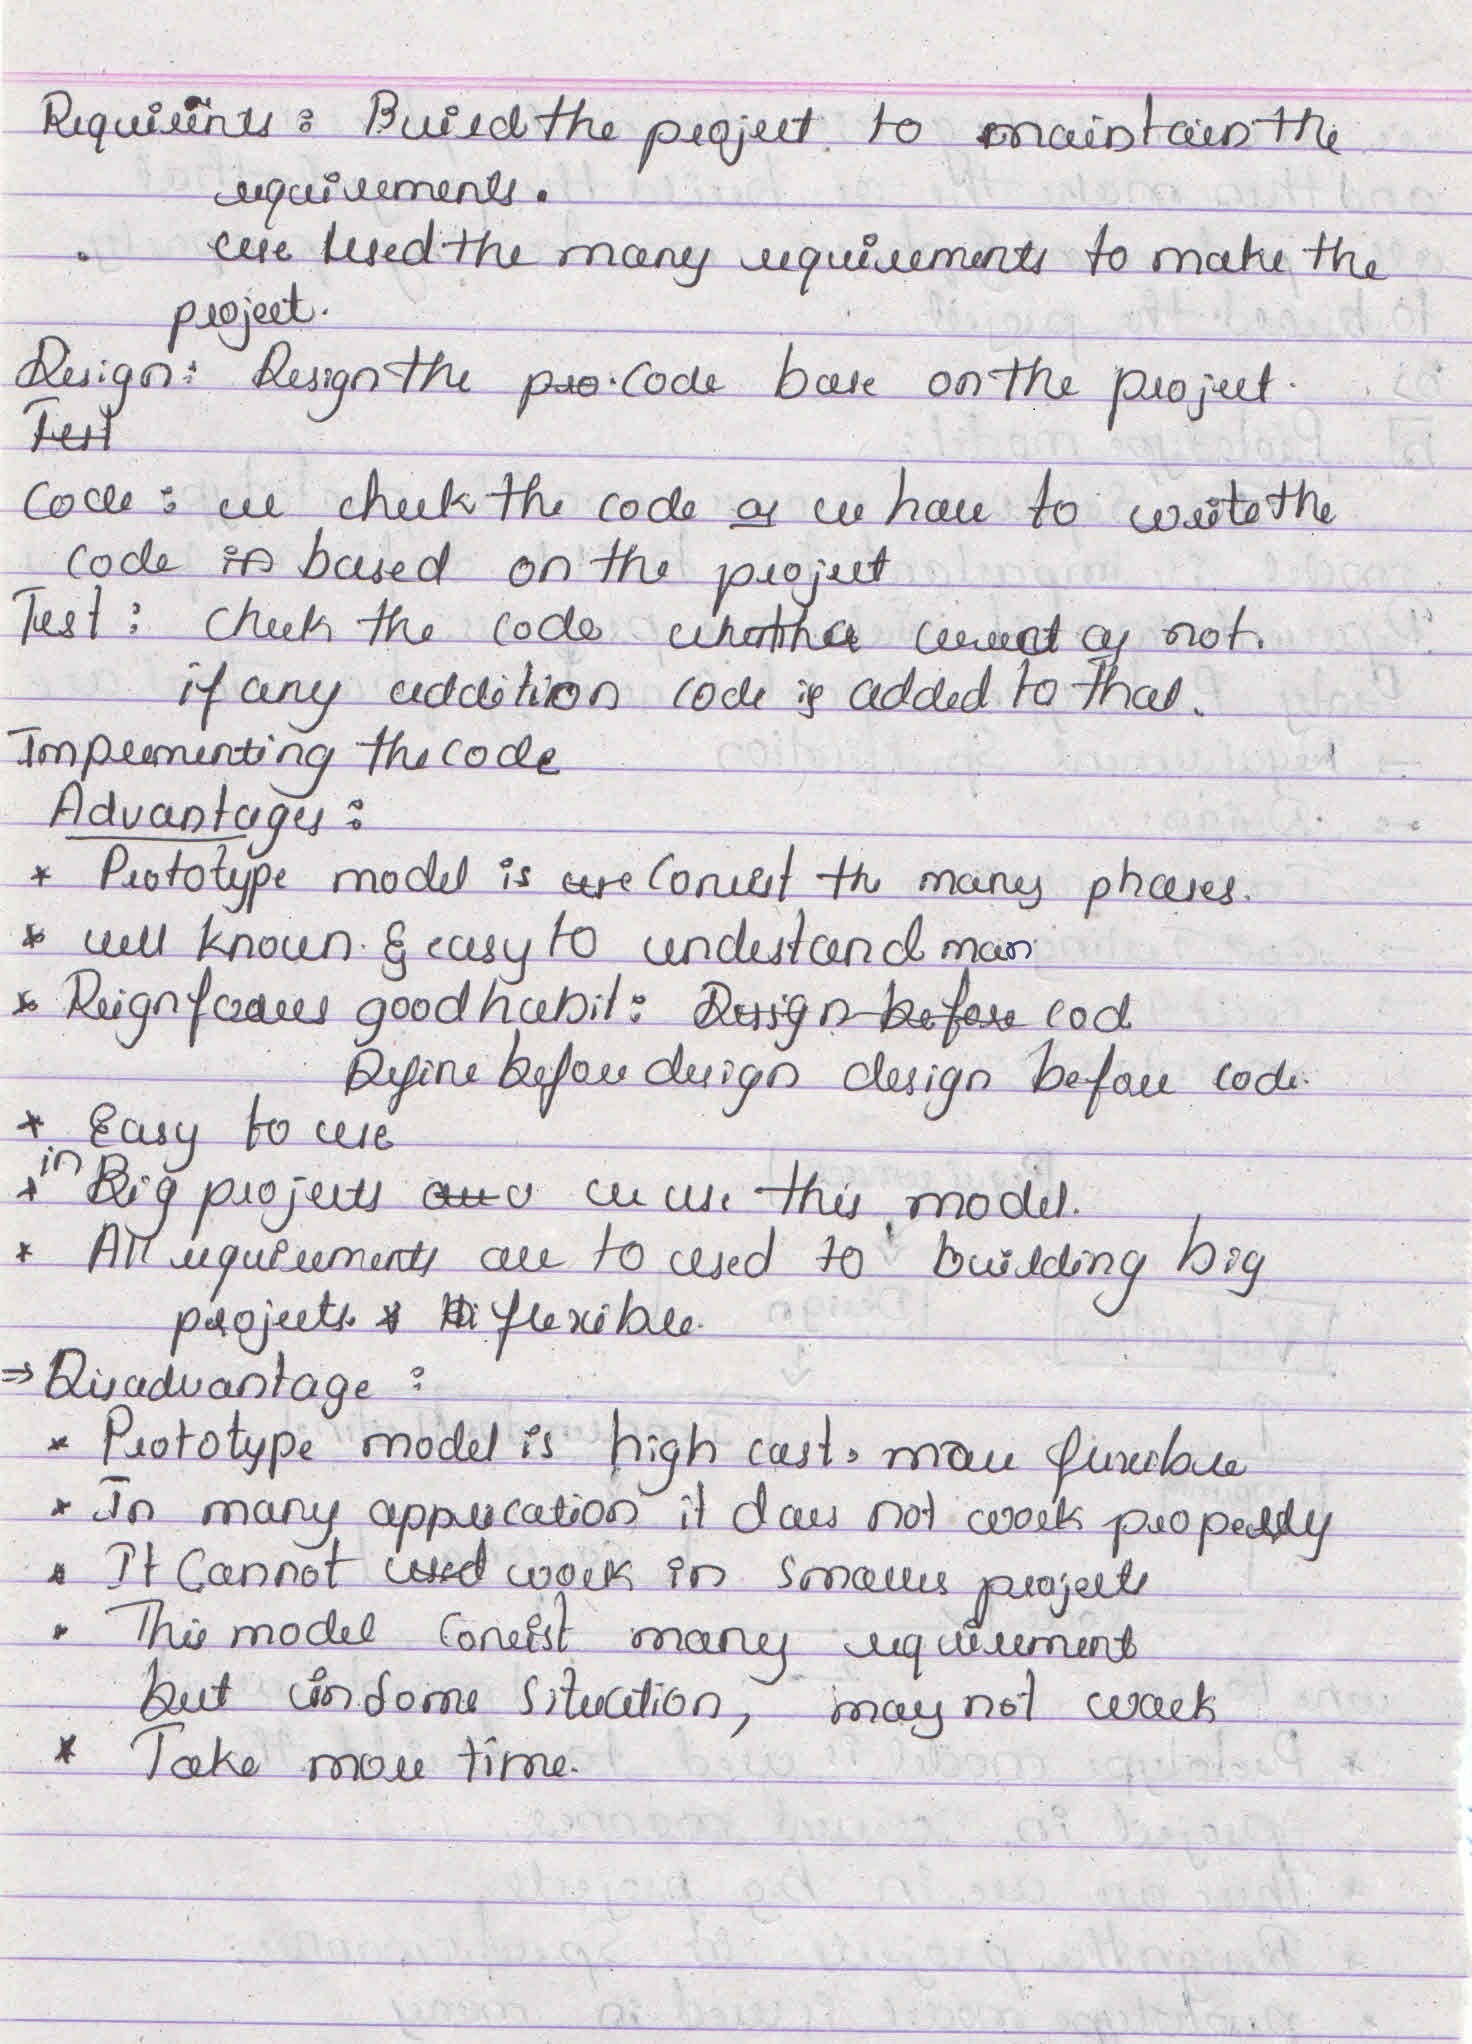 Requiients : Build the project to maintain the
requirements.
. we Used the many requirements to make the
project.
Design : Design the pro. code base on the project.
Test
Code : we check the code as we have to write the
code is based on the project
Test : check the code whether correct or not.
if any addition code is added to that.
Implementing the code
Advantages :
* Prototype model is are Consist the many phases.
* well known & easy to understand man
* Reignforces good habit : Design before cod
Define before design design before code.
* Easy to use
* in Big projects we use this model.
* All requirements are to used to building big
projects. * flexible.
⇒ Disadvantage :
* Prototype model is high cast. more flexible
* In many application it does not work properly
* It Cannot used work in smaller projects
* This model Consist many requirement
but in Some Situation, may not work
* Take more time.